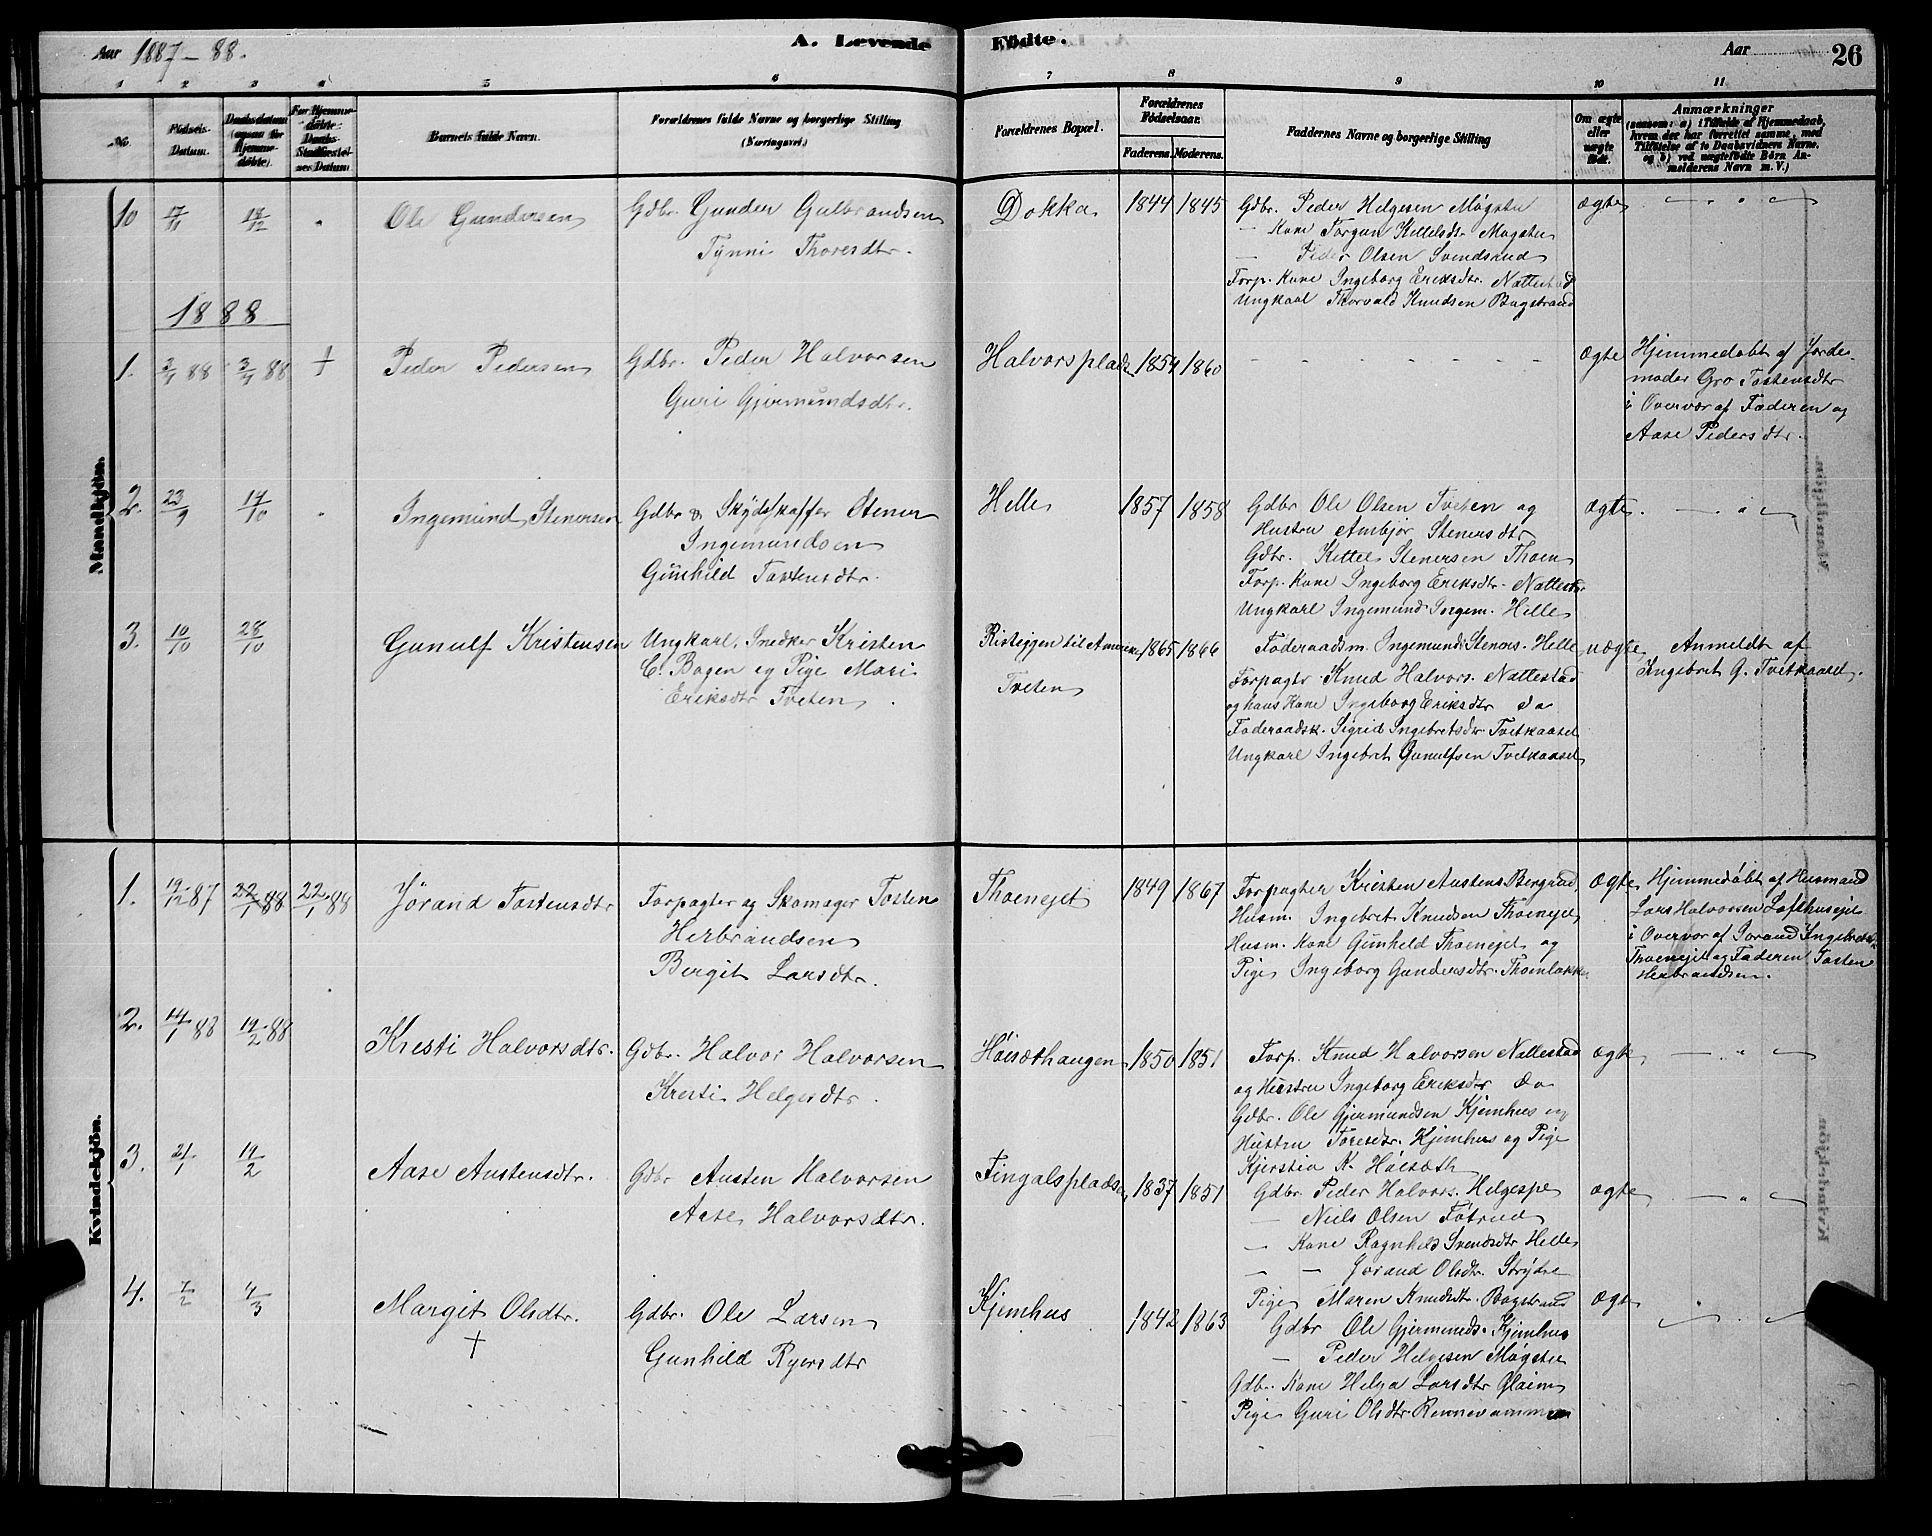 Aar 1887-88.
A. Levende Födte.
Aar
26
1 2 3 4 5 6 7 8 9 10 11
No.
Födsels-Datum.
Daabsdatum (ogsaa för Hjemmedöbte).
Barnets fulde Navn.
Forældrenes fulde Navne og borgerlige Stilling (Næringsvei.)
Forældrenes Bopæl.
Forældrenes Födselsaar.
Faderens. Moderens.
Faddernes Navne og borgerlige Stilling
Om ægte eller uægte födt.
Anmærkninger
(saasom: a) i Tilfælde af Hjemmedaab, hvem der har forrettet samme, med Tilföielse af to Daabsvidners Navne, og b) ved uægtefödte Börn Anmelderens Navn m. V.)
Mandkjön.
10 17/11 14/12 Ole Gundersen
Gdbr. Gunder Gulbrandsen
Tynni Thoresdtr.
Dokka 1844 1845
Gdbr. Peder Helgesen Møgster
— Kone Torgun Kittelsdtr Møgster
— Peder Olsen Svendsrud
Forp. Kone Ingeborg Eriksdtr. Nattestad
Ungkarl Thorvald Knudsen Bagstrand
ægte
1888
1. 3/4 88 3/4 88 † Peder Pedersen
Gdbr. Peder Halvorsen
Guri Gjermundsdtr.
Halvorsplads 1854 1860
ægte
Hjemmedøbt af Jorde-
moder Gro Tostensdtr
i Overvær af Faderen og
Aase Pedersdtr.
2. 23/9 14/10 Ingemund Stenersen
Gdbr & Skydsskaffer Stener
Ingemundsen
Gunhild Tostensdtr.
Helle 1857 1858
Gdbr Ole Olsen Tveten og
Hustru Ambjør Stenersdtr
Gdbr. Kittel Stenersen Thoen
Forp. Kone Ingeborg Eriksdtr. Nattestad
Ungkarl Ingemund Ingem. Helle
ægte
3. 10/10 28/10 Gunulf Kristensen
Ungkarl, Snedker Kristen
C. Bagen og Pige Mari
Eriksdtr Tveten
til Amerika
Tveten
1865 1866
Føderaadsm. Ingemund Steners. Helle
Forpagter Knud Halvors. Nattestad
og hans Kone Ingeborg Eriksdtr do
Føderaadsk. Sigrid Ingebretsdtr Tvetkaasel
Ungkarl Ingebret Gunulfsen Tvetkaasel
uægte
Anmeldt af
Ingebret G. Tvetkaasel.
Kvindekjön.
1. 19/12 87 22/1 88 22/1 88 Jørand Tostensdtr
Forpagter og Skomager Tosten
Herbrandsen
Bergit Larsdtr.
Thoenejet 1849 1867
Forpagter Kristen Austens Bergrud
Husm. Ingebret Knudsen Thoenejet
Husm. Kone Gunhild Thoenejet og
Pige Ingeborg Gundersdtr. Thoenløkken
ægte
Hjemmedøbt af Husmand
Lars Halvorsen Lofthuseje
i Overvær af Jorand Ingebretsdtr
Thoenejet og Faderen Tosten
Herbrandsen.
2. 14/1 88 19/2 88 Kresti Halvorsdtr.
Gdbr. Halvor Halvorsen
Kresti Helgesdtr.
Høisæthaugen 1850 1851
Forp. Knud Halvorsen Nattestad
og Hustru Ingeborg Eriksdtr do
Gdbr. Ole Gjermundsen Kjemhus og
Hustru Toresdtr. Kjemhus og Pige
Kjerstin K. Høisæth
ægte
3. 21/1 19/2 Aase Austensdtr.
Gdbr Austen Halvorsen
Aase Halvorsdtr.
Fingalspladsen 1837 1851
Gdbr. Peder Halvors. Helgespe
— Niels Olsen Føtrud
— Kone Ragnhild Svendsdtr Helle
— — Jorand Olsdtr. Strýde
Pige Maren Knudsdtr. Bagstrand
ægte
4. 7/2 4/3 Margit Olsdtr.
†
Gdbr. Ole Larsen
Gunhild Ryersdtr
Kjemhus 1842 1863
Gdbr Ole Gjermunds. Kjemhus
— Peder Helgesen Møgster
Gdbr. Kone Helga Larsdtr Glaim
Pige Guri Olsdtr Rennevammen
ægte